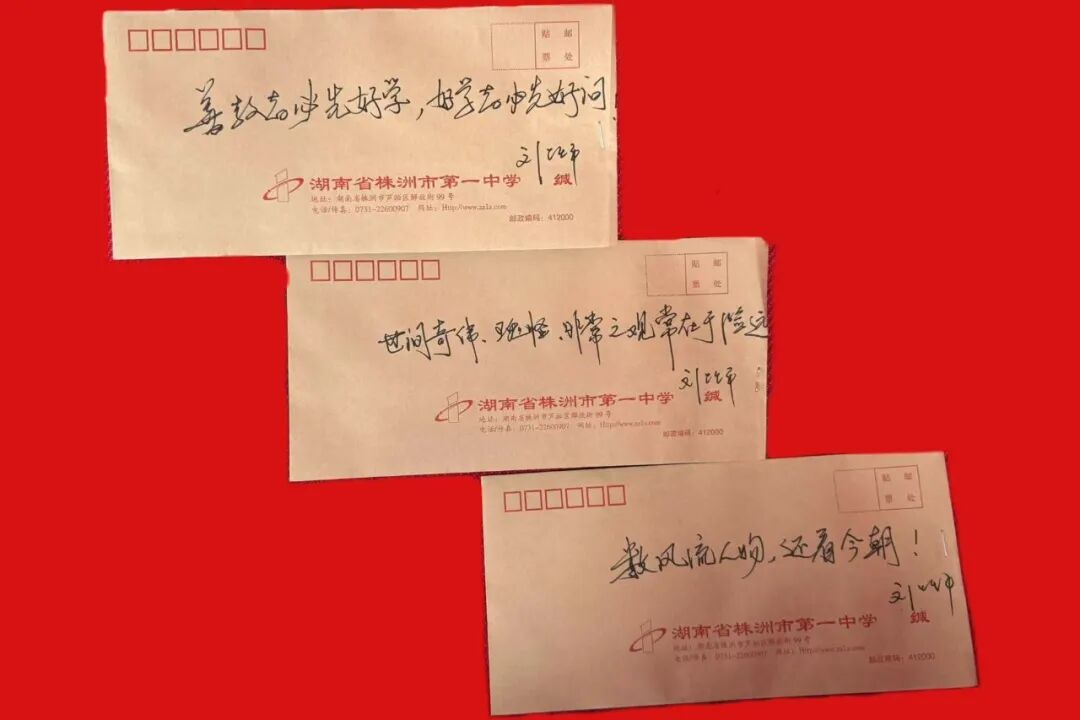 贴 邮
票 处
善教者必先好学，好学者必先好问！
刘
湖南省株洲市第一中学 缄
地址：湖南省株洲市芦淞区解放街99号
电话/传真：0731-22600907 网址：Http://www.zzla.com
邮政编码：412000
贴 邮
票 处
世间奇伟、瑰怪、非常之观常在于险远
刘
湖南省株洲市第一中学 缄
地址：湖南省株洲市芦淞区解放街99号
电话/传真：0731-22600907 网址：Http://www.zzla.com
邮政编码：412000
贴 邮
票 处
数风流人物，还看今朝！
刘
湖南省株洲市第一中学 缄
地址：湖南省株洲市芦淞区解放街99号
电话/传真：0731-22600907 网址：Http://www.zzla.com
邮政编码：412000